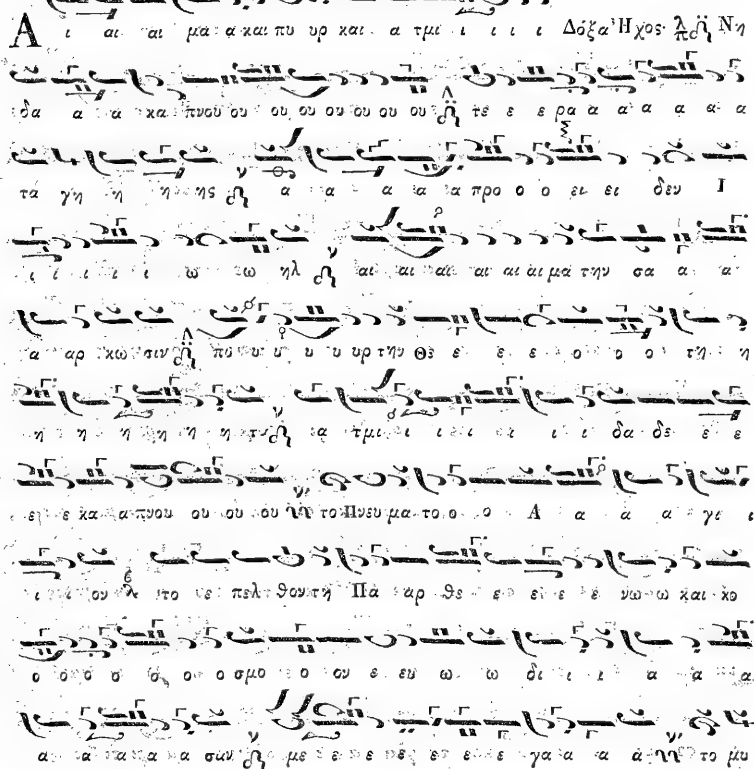 Α ι αι αι μα α και πυ υρ και α τμι ι ι ι Δόξα Ἦχος Νη
δα α α κα πνου ου ου ου ου ου ου ου τε ε ε ρα α α α α α α
τά γη η η ης α α α α προ ο ο ει ει δεν Ι
ι ι ι ι ι ω ω ηλ αι αι αι αι αι αι μα την σα α α
α αρ κω σιν πυ υ υ υ υ υρ την Θε ε ε ε ο ο ο τη η
η η η η η η τα α τμι ι ι ι ι ι ι ι δα δε ε ε
ε ε κα α πνου ου ου ου το Πνευ μα το ο ο Α α α α γι ι
ι ι ον το ε πελ θον τη Πα αρ θε ε ε ε ε νω ω και κο
ο ο ο ο ο ο ο σμο ο ον ε ευ ω ω δι ι ι α α α
α α α α α σαν με ε ε ε ε ε γα α α α το μυ